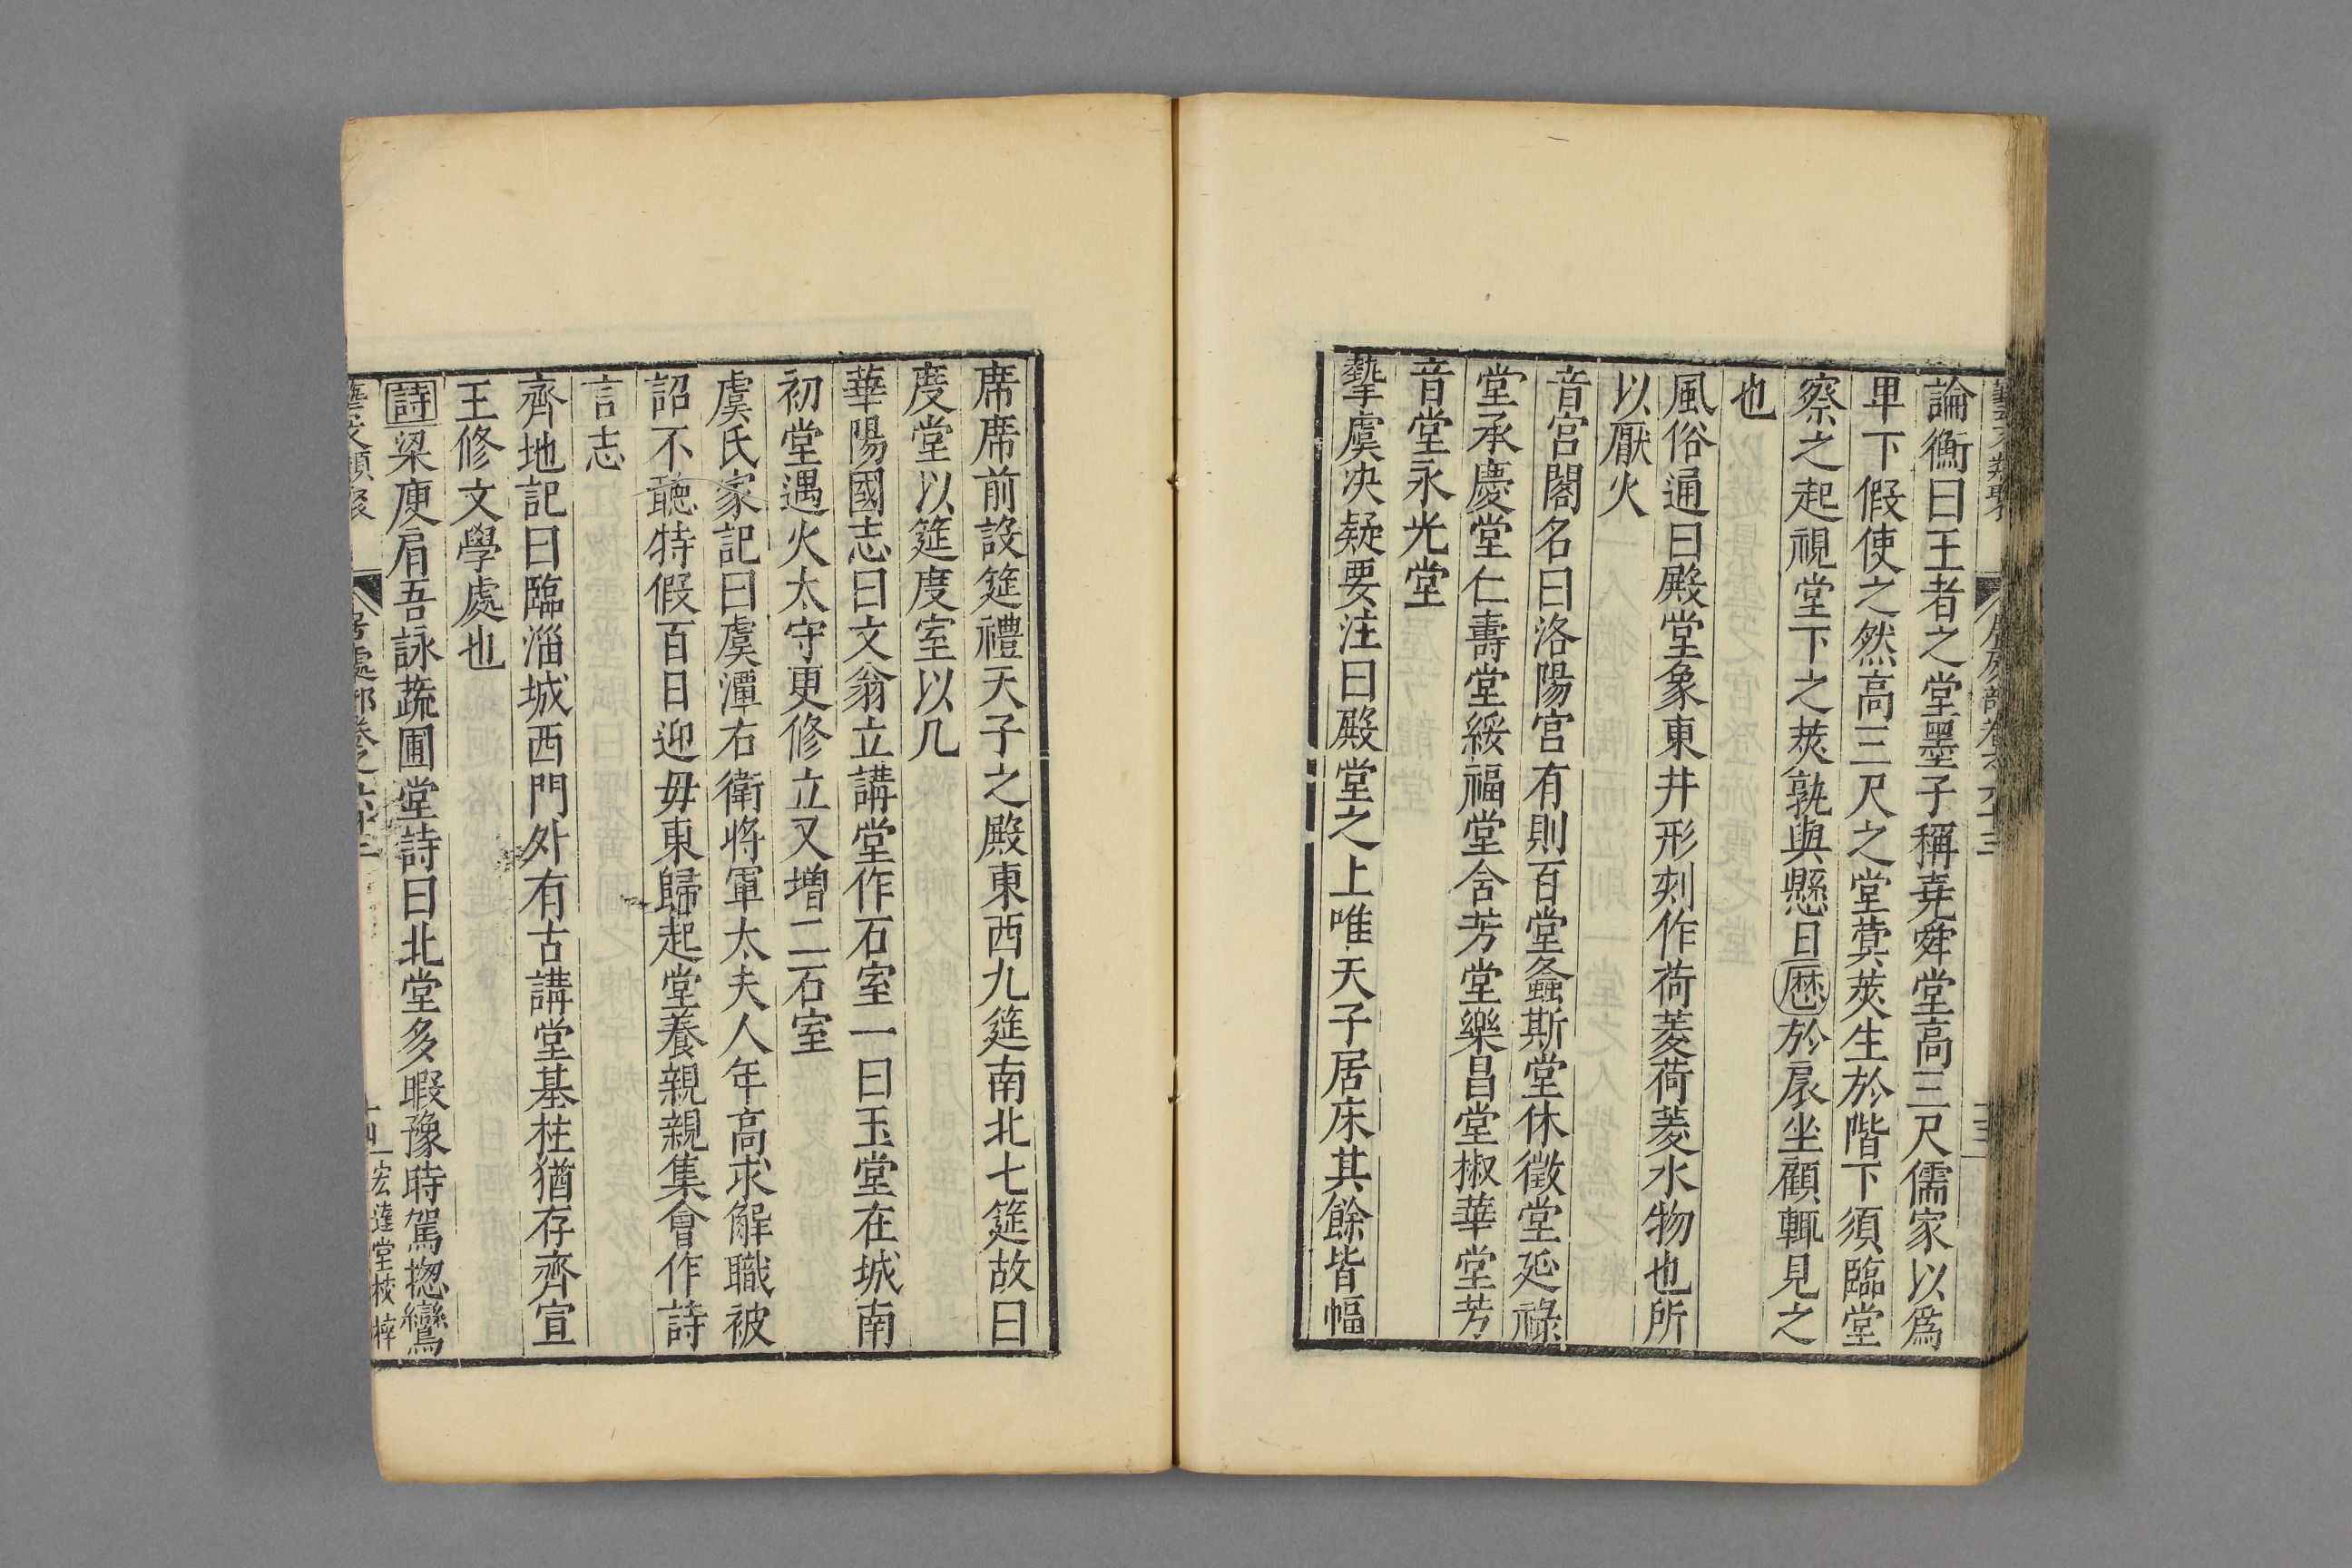 論衡曰王者之堂墨子稱堯舜堂高三尺儒家以爲
卑下假使之然高三尺之堂蓂莢生於階下須臨堂
察之起視堂下之莢孰與懸日曆於扆坐顧輒見之
也
風俗通曰殿堂象東井形刻作荷菱荷菱水物也所
以厭火
音宮閣名曰洛陽宮有則百堂螽斯堂休徵堂延祿
堂承慶堂仁壽堂綏福堂含芳堂樂昌堂椒華堂芳
音堂永光堂
摯虞決疑要注曰殿堂之上唯天子居床其餘皆幅
席席前設筵禮天子之殿東西九筵南北七筵故曰
度堂以筵度室以几
華陽國志曰文翁立講堂作石室一曰玉堂在城南
初堂遇火太守更修立又增二石室
虞氏家記曰虞潭右衛將軍太夫人年高求解職被
詔不聽特假百日迎毋東歸起堂養親親集會作詩
言志
齊地記曰臨淄城西門外有古講堂基柱猶存齊宣
王修文學處也
詩梁庾肩吾詠蔬圃堂詩曰北堂多暇豫時駕揔鸞
藝文類聚 居處部卷之六十三 十四 宏達堂校梓